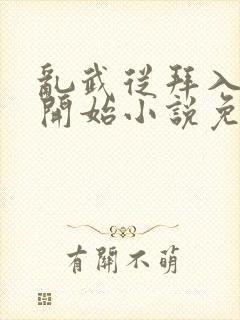 亂武從拜入
開始小說免
有開不萌